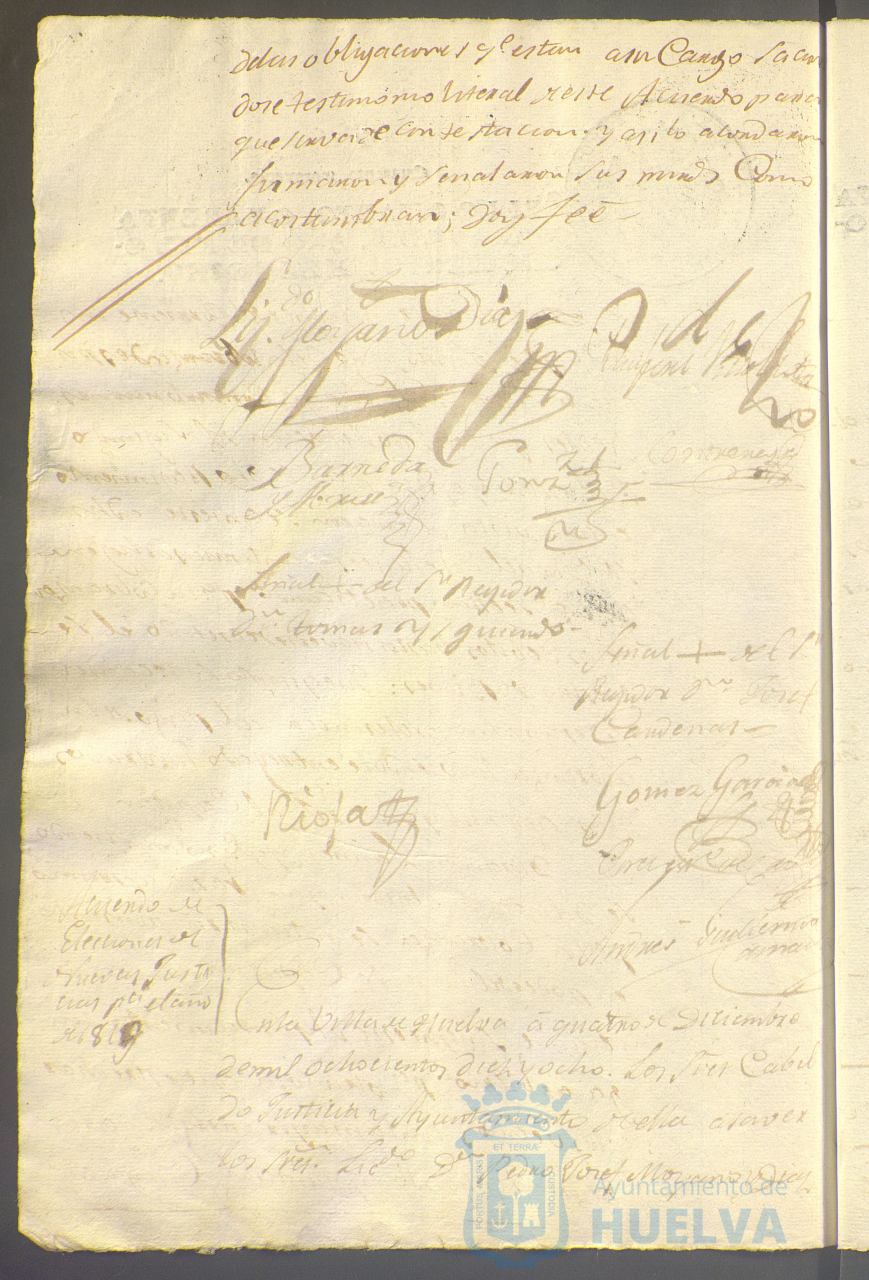 delas obligaciones qe. estan asu Cargo sacan
dose testimonio literal de este Acuerdo para
que sirva de contestacion. y asi lo acordaron
firmaron y señalaron sus mrds Como
acostumbran; doy feé
Liz.do Moyano Diaz
Barreda
Gonz.z
Contreras
Señal + del Sr. Regidor
Dn. tomas Yzquierdo
Señal + del Sr.
Regidor Dn. Josef
Cardenas
Gomez Garcia
Rioja
Andres Guillermo
Acuerdo de
Elecciones de
Nuevas Justi
cias pa. el año
de 1819
En la Villa de Huelva á quatro de Diciembre
de mil ochocientos diez y ocho. Los Sres Cabil
do Justicia y Ayuntamiento de ella asaver
los Sres. Licdo. Dn. Pedro Josef Moyano Diaz
ET TERRAE
PORTUS MARIS
CUSTODIA
Ayuntamiento de
HUELVA